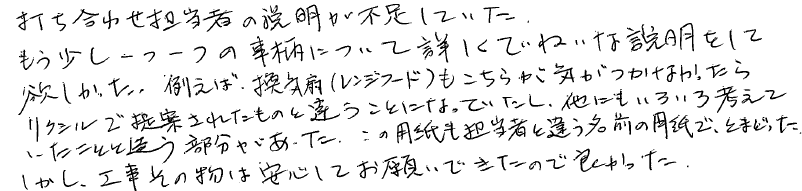 打ち合わせ担当者の説明が不足していた.
もう少し一つ一つの事柄について詳しくていねいな説明をして
欲しかった. 例えば、換気扇(レンジフード)もこちらが気がつかなかったら
リクシルで提案されたものと違うことになっていたし、他にもいろいろ考えて
いたことと違う部分があった. この用紙も担当者と違う名前の用紙で、とまどった.
しかし、工事その物は安心してお願いできたので良かった.